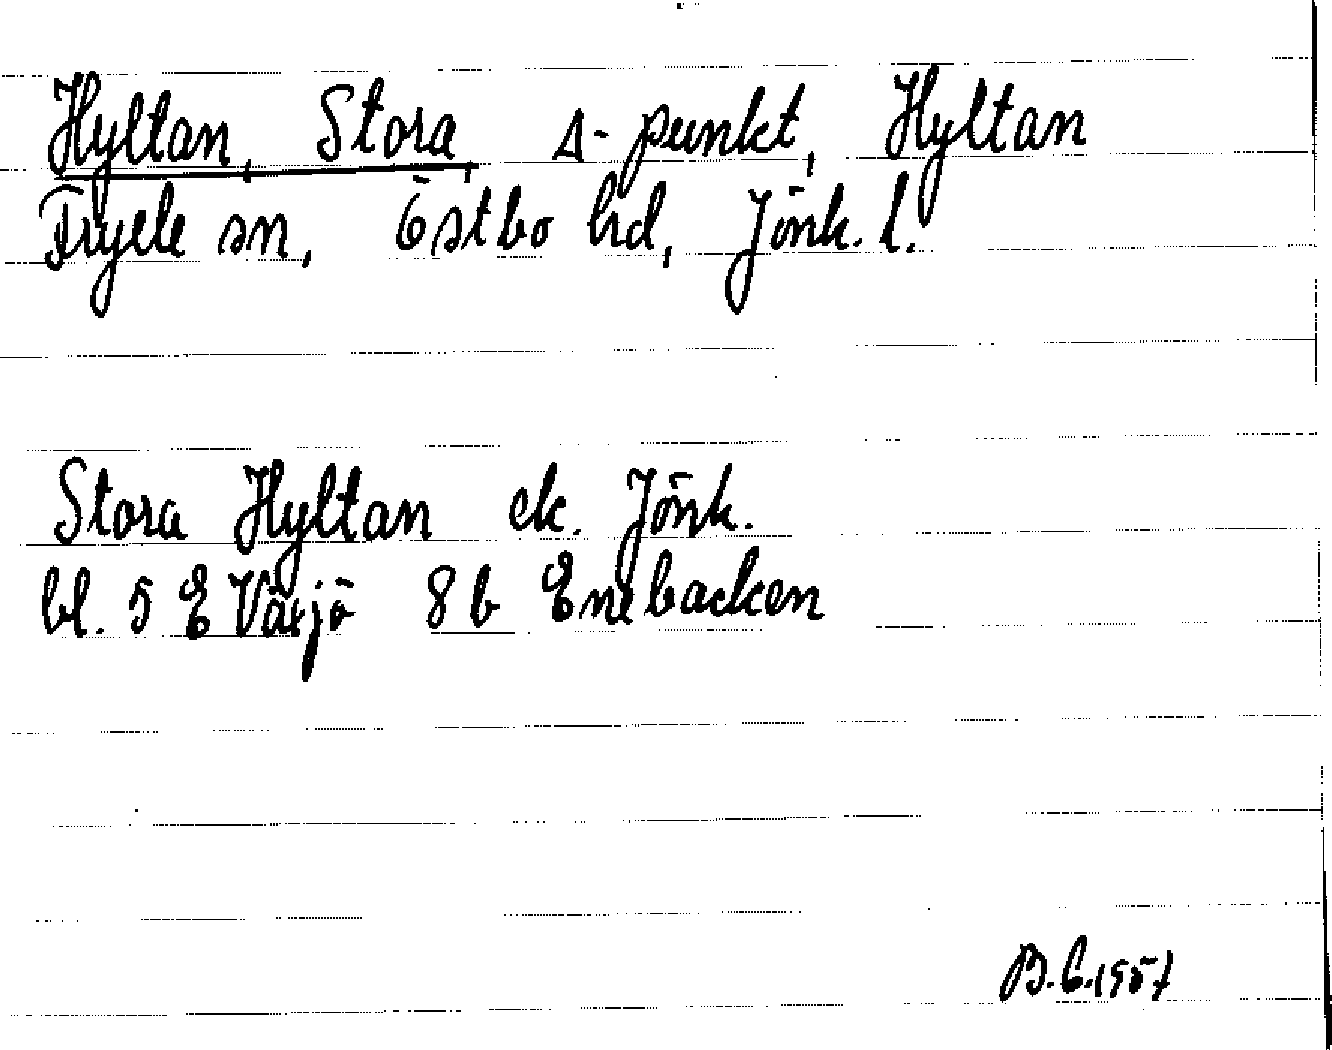 Hyltan, Stora, Δ-punkt, Hyltan
Fryele sn, Östbo hd, Jönk. l.
Stora Hyltan ek. Jönk.
bl. 5 E Växjö 8 b Enebacken
B.C. 1957